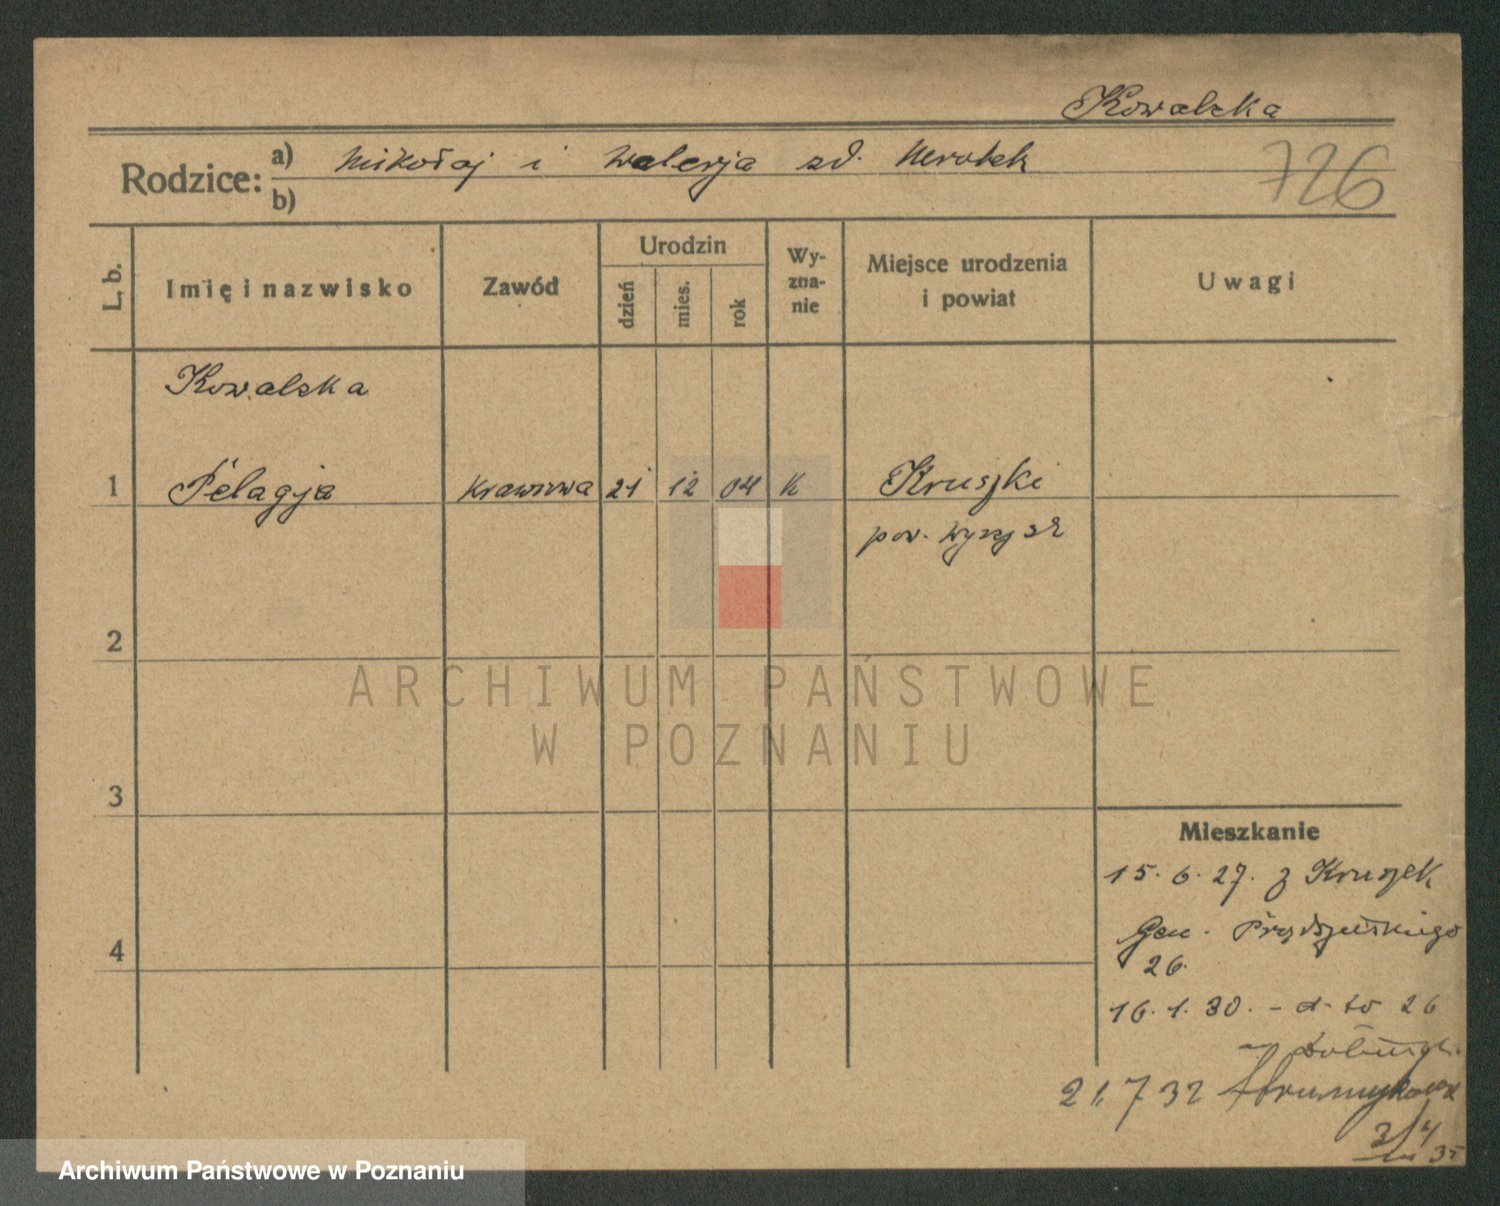 Kowalska
Rodzice: a) Mikołaj i Walerja zd. Mrotek
b)
726
L. b.
Imię i nazwisko
Zawód
Urodzin
dzień
mies.
rok
Wy-
zna-
nie
Miejsce urodzenia
i powiat
Uwagi
Kowalska
1 Pelagja krawcowa 21 12 04 K Kruszki
pow. Wyrzysk
2
ARCHIWUM PAŃSTWOWE
W POZNANIU
3
Mieszkanie
15.6.27. z Kruszek
Gen. Prądzyńskiego
26.
4
16.1.30. - d-to 26
21.7 32
Archiwum Państwowe w Poznaniu